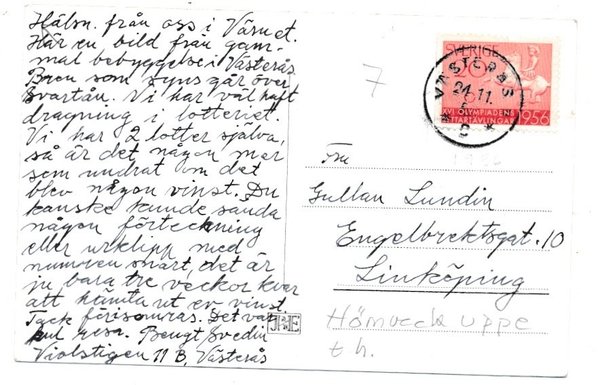 Hälsn. från oss i Värnet.
Här en bild från gam-
mal bebyggelse i Västerås
Bron som syns går över
Svartån. Vi har väl haft
dragning i lotteriet.
Vi har 2 lotter själva,
så är det någon mer
som undrat om det
blev någon vinst. Du
kanske kunde sända
någon förteckning
eller urklipp med
numren snart, det är
ju bara tre veckor kvar
att hämta ut ev vinst.
Tack förisomras. Det var
kul resa. Bengt Svedin
Violstigen 11 B, Västerås
7
SVERIGE
VÄSTERÅS
21.11.
XVI OLYMPIADENS
RYTTARTÄVLINGAR 1956
Fru
Gullan Lundin
Engelbrektsgat. 10
Linköping
uppe
t h.